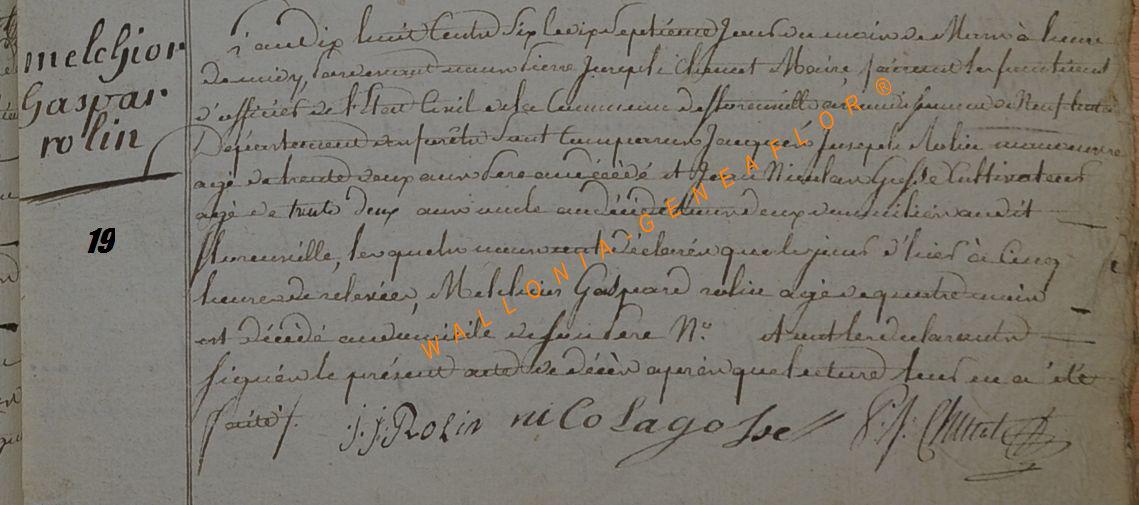 melchior
Gaspar
rolin
19
L'an dix huit Cents Six le dix Septieme Jour du mois de Mars à heure
de midy, pardevant nous Pierre Joseph Maire faisant les fonctions
d'officier de l'Etat Civil de la Commune de florenville arrondissement de Neufchateau
Département des forêts Sont Comparus Jacques Joseph Rolin manoeuvre
agé de trente deux ans pere au décédé et Jean Nicolas Gosse Cultivateur
agé de trente deux ans oncle au décédé tous deux domiciliés audit
florenville, lesquels nous ont déclarés que le jour d'hier à Cinq
heures de relevées, Melchior Gaspard rolin agé de quatre mois
est décédé au domicile de son pere N.º et ont les declarants
Signés le présent acte de décès apres que lecture leur en a été
faite ſ.
J. J. ROLIN nicolas gosse P. J.
WALLONIA-GENEAFLOR ®